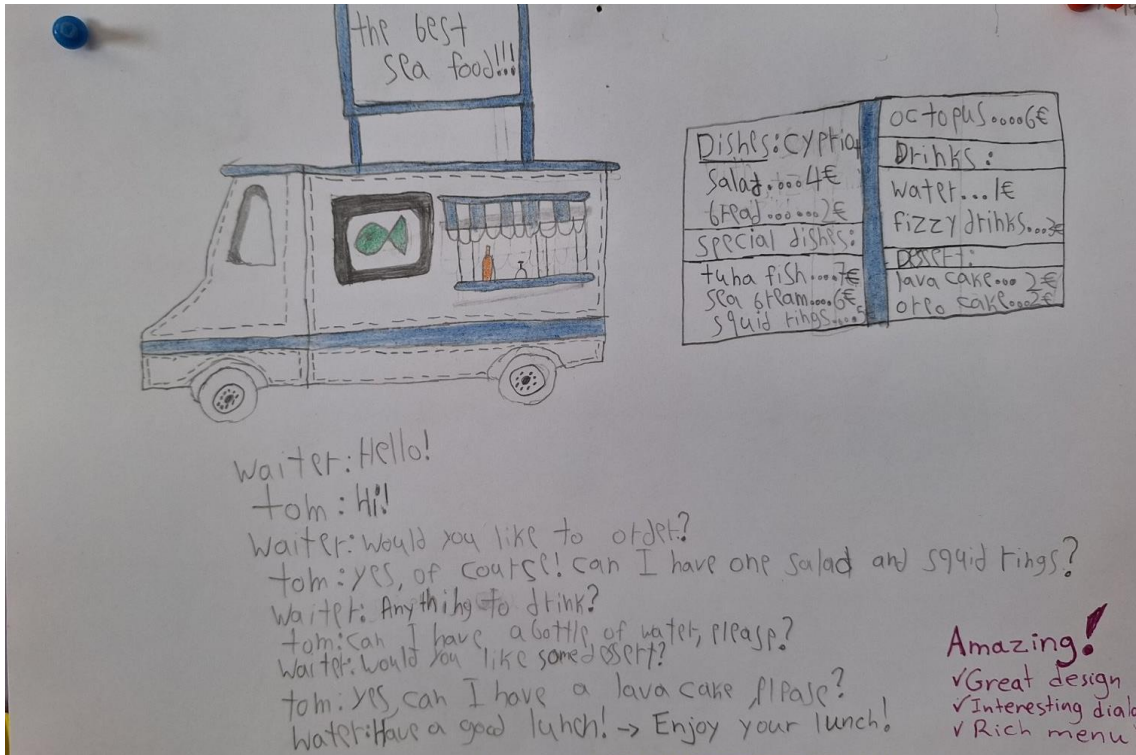 the best
sea food!!!
Dishes: Cypriot
Salad....4€
bread......2€
special dishes:
tuna fish....7€
sea bream....6€
squid rings....5
octopus....6€
Drinks:
water...1€
fizzy drinks...2€
Dessert:
lava cake... 2€
oreo cake...2€
waiter: Hello!
tom: Hi!
waiter: would you like to order?
tom: yes, of course! can I have one salad and squid rings?
waiter: Anything to drink?
tom: can I have a bottle of water, please?
waiter: would you like some dessert?
tom: yes, can I have a lava cake please?
water: Have a good lunch! → Enjoy your lunch!
Amazing!
✓Great design
✓Interesting
✓Rich menu